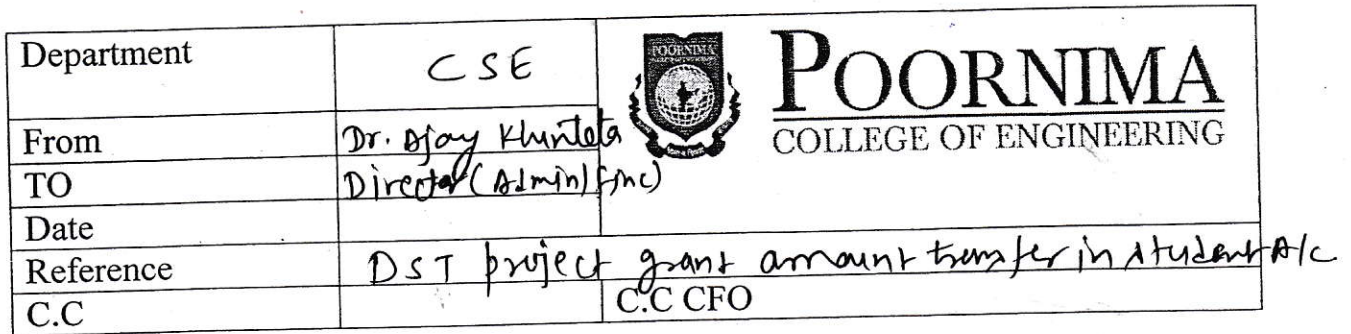 Department CSE
POORNIMA
POORNIMA
COLLEGE OF ENGINEERING
From Dr. Ajay Khunteta
TO Director (Admin)
Date
Reference DST project grant amount transfer in student A/c
C.C C.C CFO